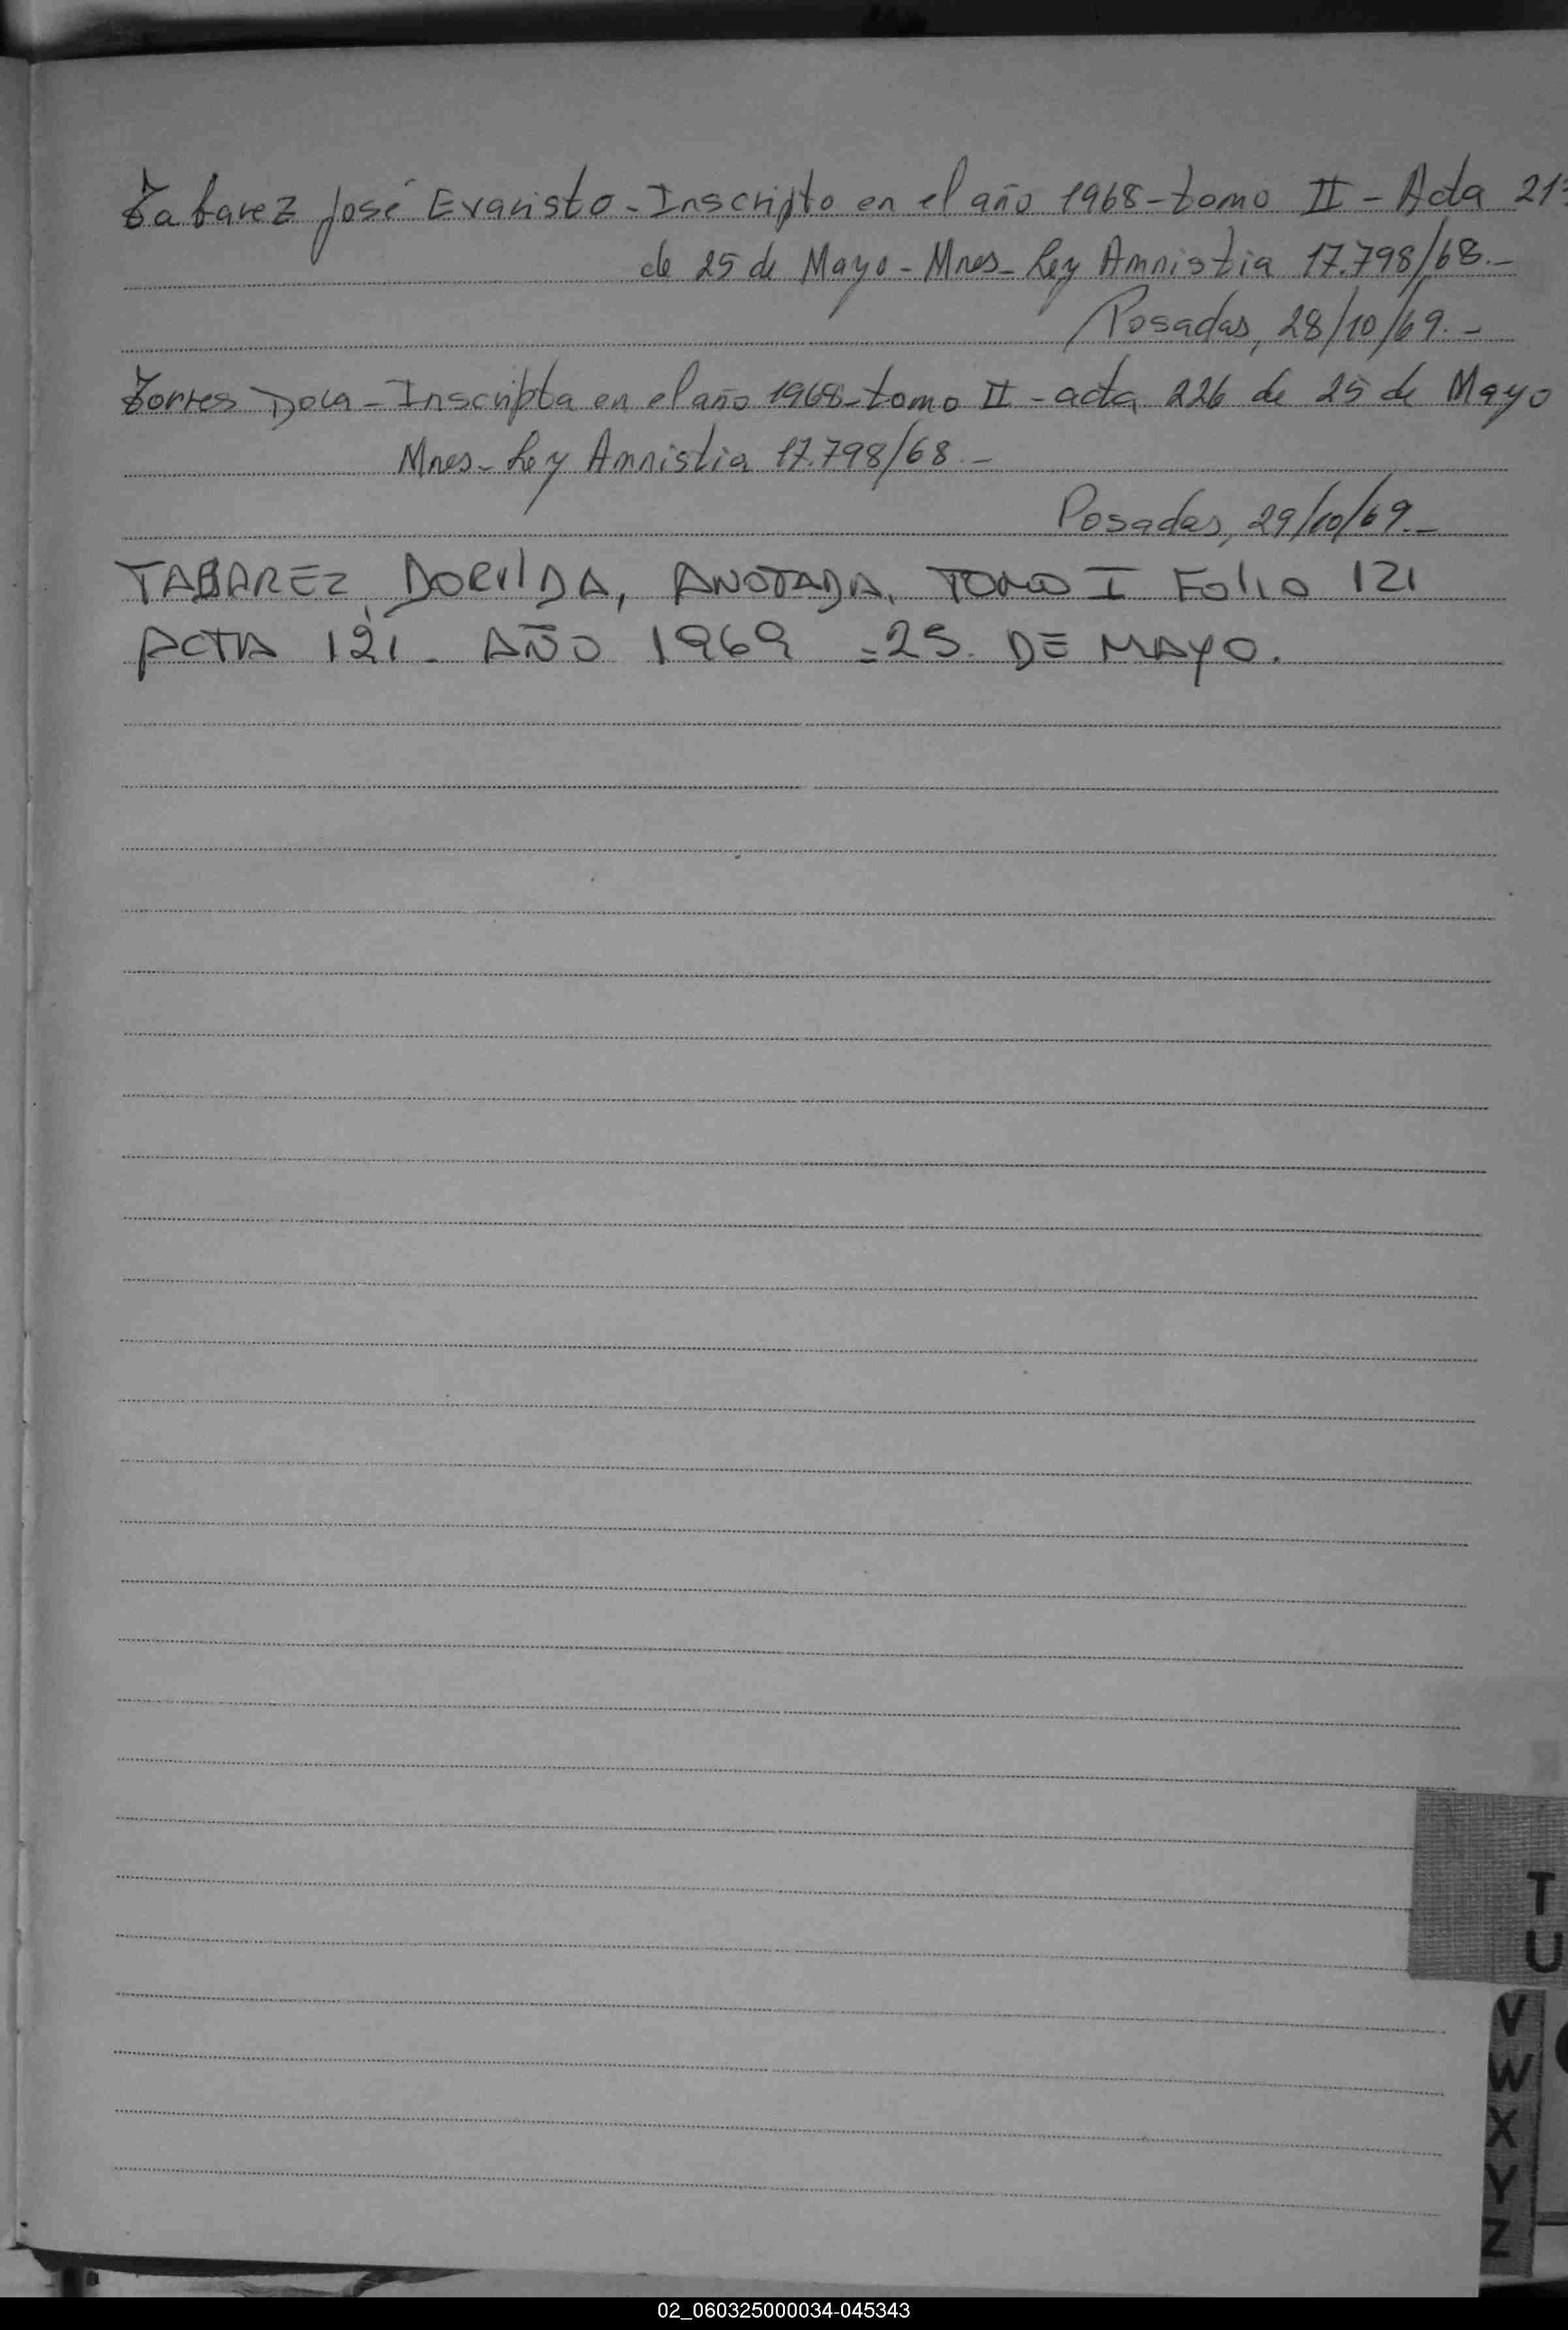 Tabarez José Evaristo - Inscripto en el año 1968 - tomo II - Acta 21
de 25 de Mayo - Mnes - Ley Amnistia 17.798/68.-
Posadas, 28/10/69.-
Torres Dora - Inscripta en el año 1968 - tomo II - acta 226 de 25 de Mayo
Mnes - Ley Amnistia 17.798/68.-
Posadas, 29/10/69.-
TABAREZ, DORVIDA, ANOTADA, TOMO I Folio 121
ACTA 121. AÑO 1969 = 25. DE MAYO.
T
U
V
W
X
Y
Z
02_060325000034-045343